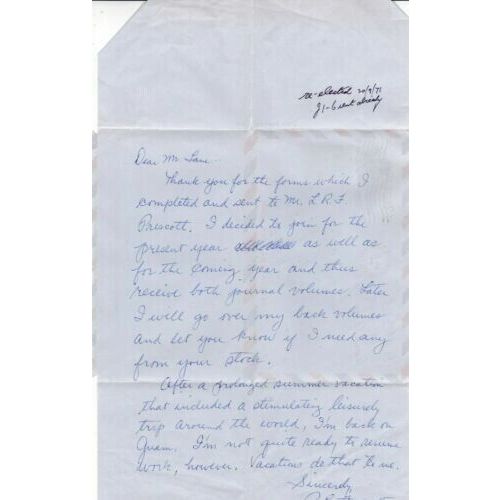 re-elected 20/9/71
J1-6 sent already
Dear Mr Lane
Thank you for the forms which I
completed and sent to Mr. L.R.F.
Prescott. I decided to join for the
present year as well as
for the coming year and thus
receive both journal volumes. Later
I will go over my back volumes
and let you know if I need any
from your stock.
After a prolonged summer vacation
that included a stimulating leisurely
trip around the world, I'm back on
Guam. I'm not quite ready to resume
work, however. Vacations do that to me.
Sincerely